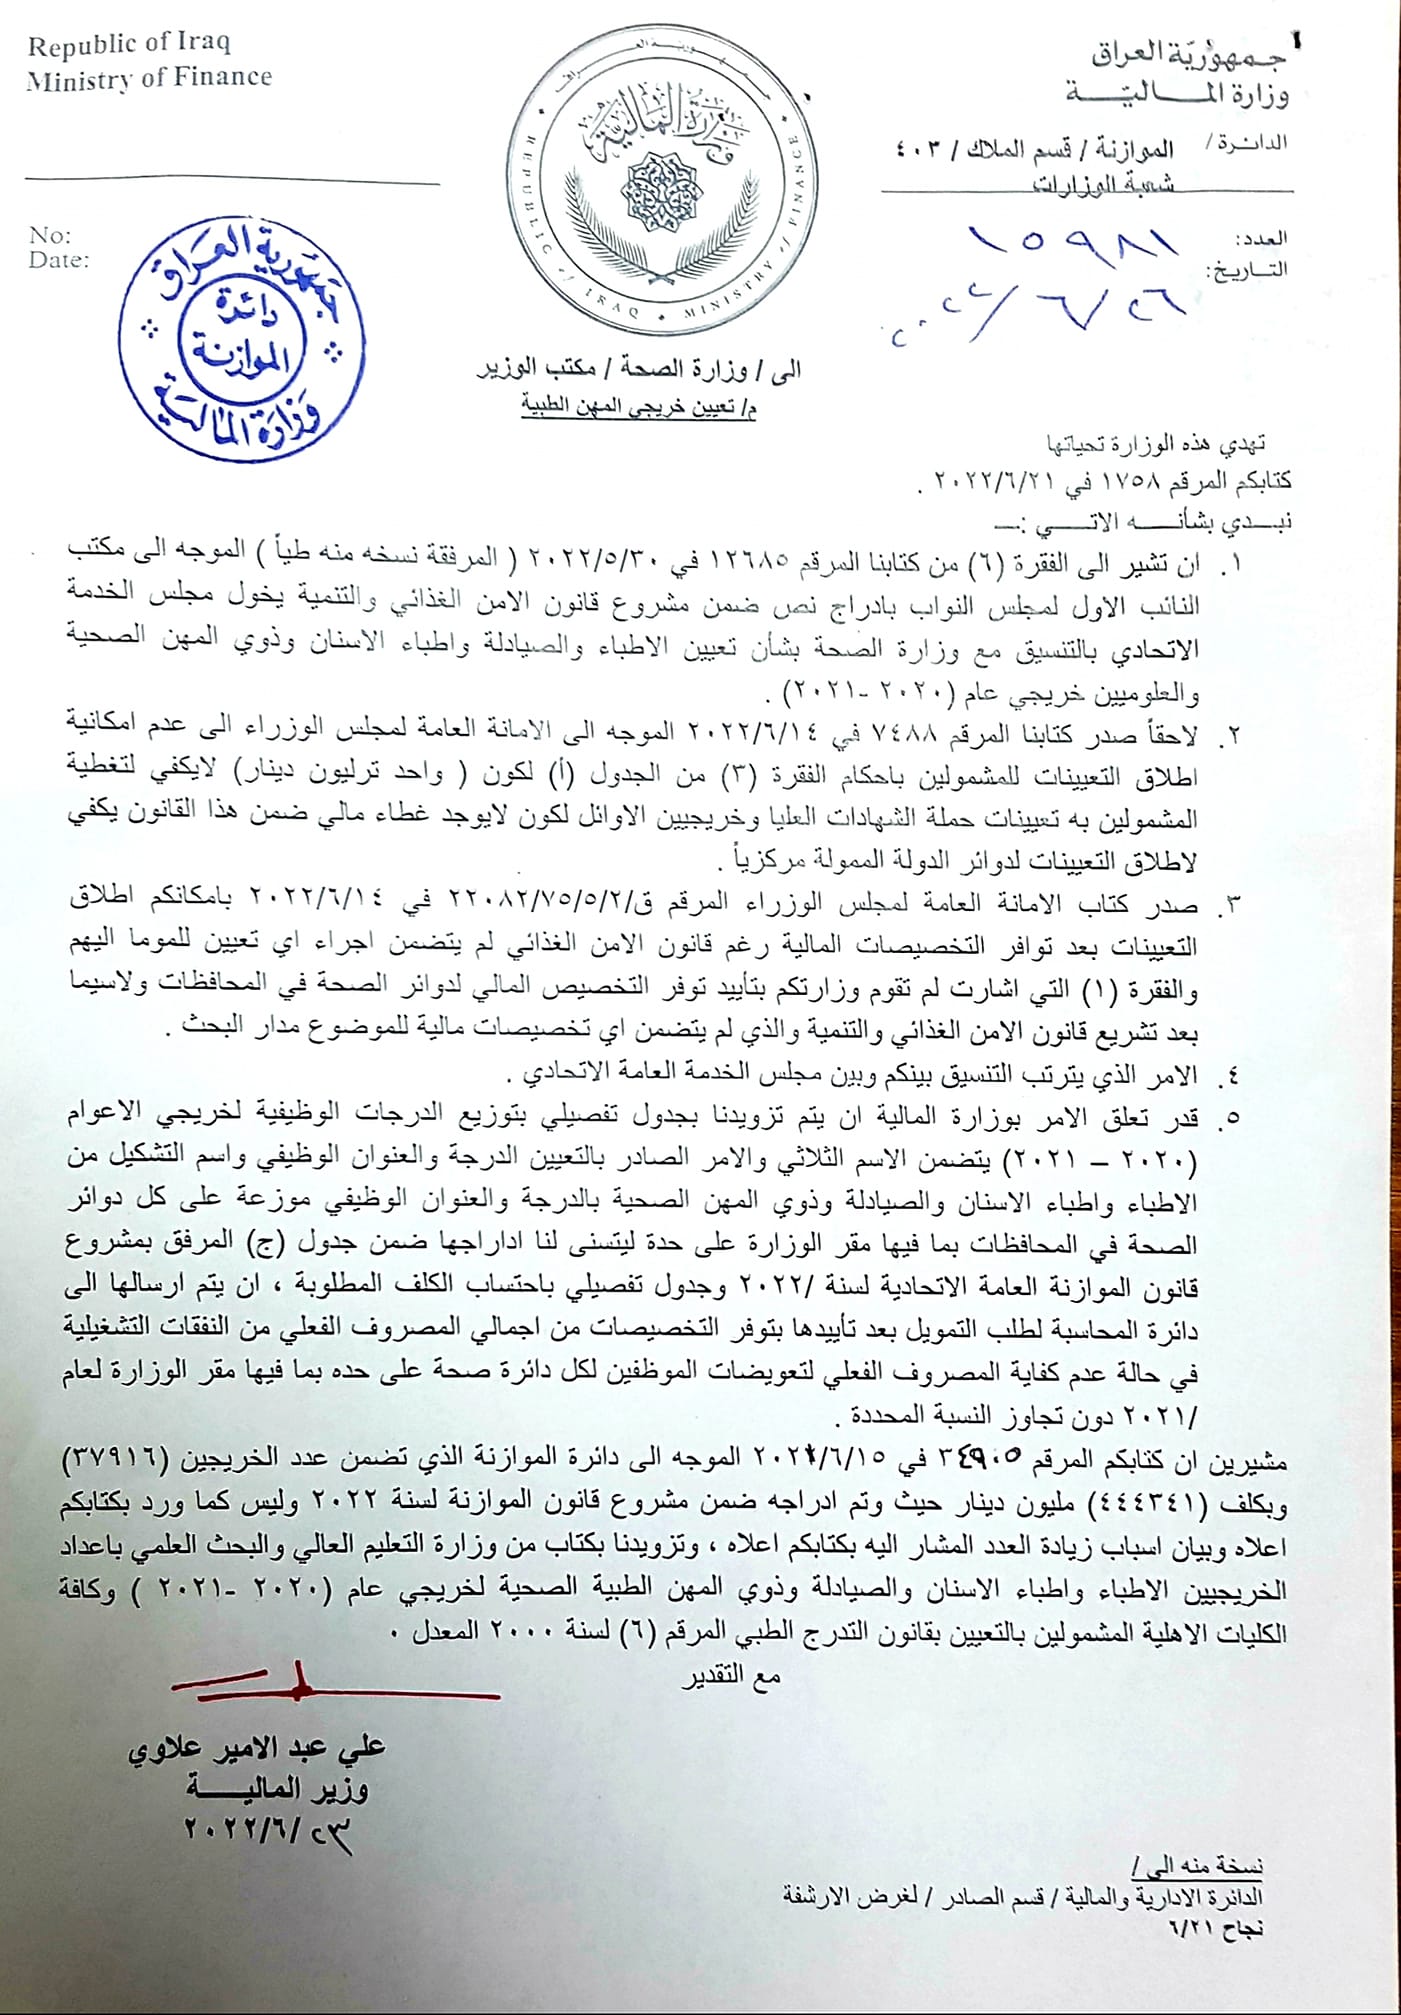 Republic of Iraq
Ministry of Finance
No:
Date:
جمهورية العراق
وزارة المالية
الدائرة/ الموازنة / قسم الملاك / ٤٠٣
شعبة الوزارات
العدد: ١٥٩٨١
التاريخ: ٢٦/٦/٢٠٢٢
وزارة المالية
REPUBLIC // IRAQ • MINISTRY // FINANCE
جمهورية العراق
دائرة
الموازنة
وزارة المالية
الى / وزارة الصحة / مكتب الوزير
م/ تعيين خريجي المهن الطبية
تهدي هذه الوزارة تحياتها
كتابكم المرقم ١٧٥٨ في ٢٠٢٢/٦/٢١ .
نبدي بشأنه الاتي :ـ
١. ان تشير الى الفقرة (٦) من كتابنا المرقم ١٢٦٨٥ في ٢٠٢٢/٥/٣٠ ( المرفقة نسخه منه طياً ) الموجه الى مكتب
النائب الاول لمجلس النواب بادراج نص ضمن مشروع قانون الامن الغذائي والتنمية يخول مجلس الخدمة
الاتحادي بالتنسيق مع وزارة الصحة بشأن تعيين الاطباء والصيادلة واطباء الاسنان وذوي المهن الصحية
والعلوميين خريجي عام (٢٠٢٠ -٢٠٢١) .
٢. لاحقاً صدر كتابنا المرقم ٧٤٨٨ في ٢٠٢٢/٦/١٤ الموجه الى الامانة العامة لمجلس الوزراء الى عدم امكانية
اطلاق التعيينات للمشمولين باحكام الفقرة (٣) من الجدول (أ) لكون ( واحد ترليون دينار) لايكفي لتغطية
المشمولين به تعيينات حملة الشهادات العليا وخريجيين الاوائل لكون لايوجد غطاء مالي ضمن هذا القانون يكفي
لاطلاق التعيينات لدوائر الدولة الممولة مركزياً .
٣. صدر كتاب الامانة العامة لمجلس الوزراء المرقم ق/٢٢٠٨٢/٧٥/٥/٢ في ٢٠٢٢/٦/١٤ بامكانكم اطلاق
التعيينات بعد توافر التخصيصات المالية رغم قانون الامن الغذائي لم يتضمن اجراء اي تعيين للموما اليهم
والفقرة (١) التي اشارت لم تقوم وزارتكم بتأييد توفر التخصيص المالي لدوائر الصحة في المحافظات ولاسيما
بعد تشريع قانون الامن الغذائي والتنمية والذي لم يتضمن اي تخصيصات مالية للموضوع مدار البحث .
٤. الامر الذي يترتب التنسيق بينكم وبين مجلس الخدمة العامة الاتحادي .
٥. قدر تعلق الامر بوزارة المالية ان يتم تزويدنا بجدول تفصيلي بتوزيع الدرجات الوظيفية لخريجي الاعوام
(٢٠٢٠ – ٢٠٢١) يتضمن الاسم الثلاثي والامر الصادر بالتعيين الدرجة والعنوان الوظيفي واسم التشكيل من
الاطباء واطباء الاسنان والصيادلة وذوي المهن الصحية بالدرجة والعنوان الوظيفي موزعة على كل دوائر
الصحة في المحافظات بما فيها مقر الوزارة على حدة ليتسنى لنا اداراجها ضمن جدول (ج) المرفق بمشروع
قانون الموازنة العامة الاتحادية لسنة /٢٠٢٢ وجدول تفصيلي باحتساب الكلف المطلوبة ، ان يتم ارسالها الى
دائرة المحاسبة لطلب التمويل بعد تأييدها بتوفر التخصيصات من اجمالي المصروف الفعلي من النفقات التشغيلية
في حالة عدم كفاية المصروف الفعلي لتعويضات الموظفين لكل دائرة صحة على حده بما فيها مقر الوزارة لعام
/٢٠٢١ دون تجاوز النسبة المحددة .
مشيرين ان كتابكم المرقم ٣٤٩٠٥ في ٢٠٢١/٦/١٥ الموجه الى دائرة الموازنة الذي تضمن عدد الخريجين (٣٧٩١٦)
وبكلف (٤٤٤٣٤١) مليون دينار حيث وتم ادراجه ضمن مشروع قانون الموازنة لسنة ٢٠٢٢ وليس كما ورد بكتابكم
اعلاه وبيان اسباب زيادة العدد المشار اليه بكتابكم اعلاه ، وتزويدنا بكتاب من وزارة التعليم العالي والبحث العلمي باعداد
الخريجيين الاطباء واطباء الاسنان والصيادلة وذوي المهن الطبية الصحية لخريجي عام (٢٠٢٠ -٢٠٢١ ) وكافة
الكليات الاهلية المشمولين بالتعيين بقانون التدرج الطبي المرقم (٦) لسنة ٢٠٠٠ المعدل ٠
مع التقدير
علي عبد الامير علاوي
وزير المالية
٢٠٢٢/٦/٢٣
نسخة منه الى /
الدائرة الادارية والمالية / قسم الصادر / لغرض الارشفة
نجاح ٦/٢١